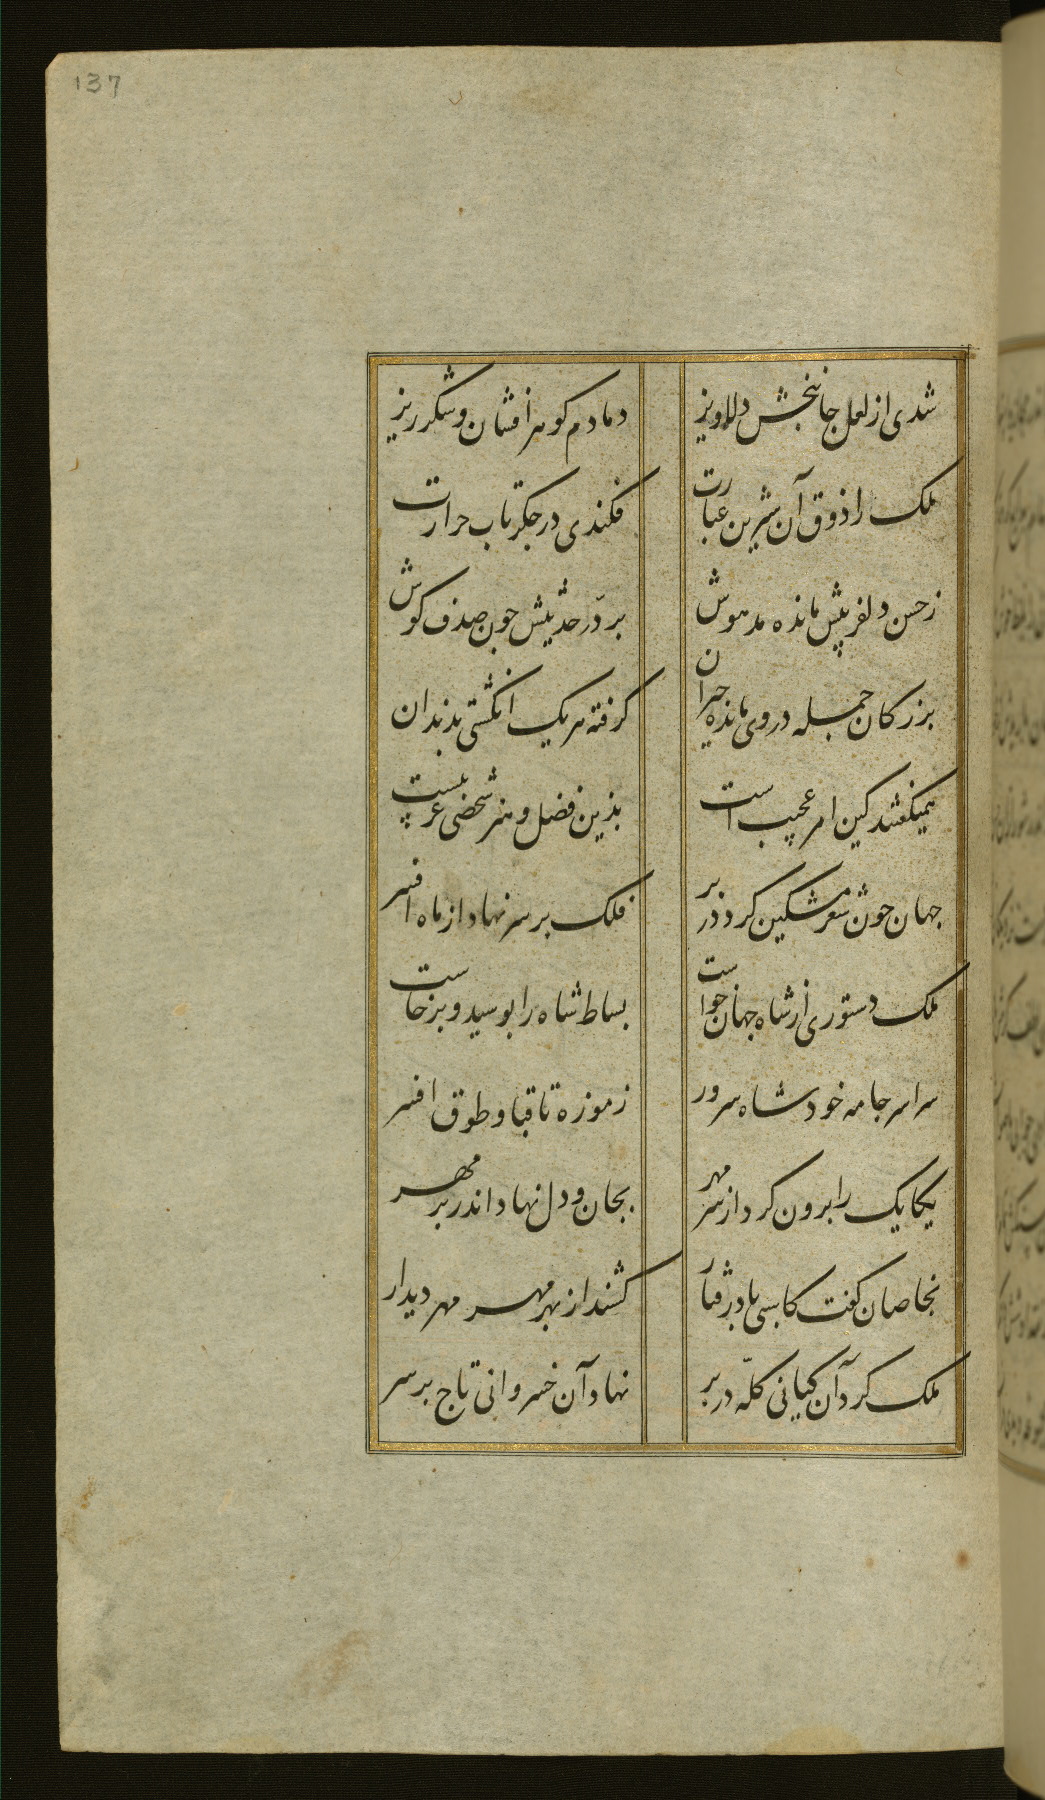 137
شدی از لعل جانبخش دلاویز دمادم کوهرافشان و شکرریز
ملک را ذوق آن شیرین عبارت فکندی در جکر تاب حرارت
زحسن دلفریبش مانده مدهوش بر در حدیثش جون صدف کوش
بزرکان جمله در وی مانده حیران کرفته هریک انکشتی بدندان
همیکفتند کین امر عجیب است بذین فضل و هنر شخصی غریبست
جهان جون شعر مشکین کرد در بر فلک بر سر نهاد از ماه افسر
ملک دستوری از شاه جهان خواست بساط شاه را بوسید و برخاست
سراسر جامه خود شاه سرور زموزه تا قبا و طوق افسر
یکایک را برون کرد از سر مهر بجان و دل نهاد اندر بر مهر
بخاصان کفت کاسبی باد رفتار کشند از بهر مهر مهر دیدار
ملک کرد آن کیانی کله در بر نهاد آن خسروانی تاج بر سر